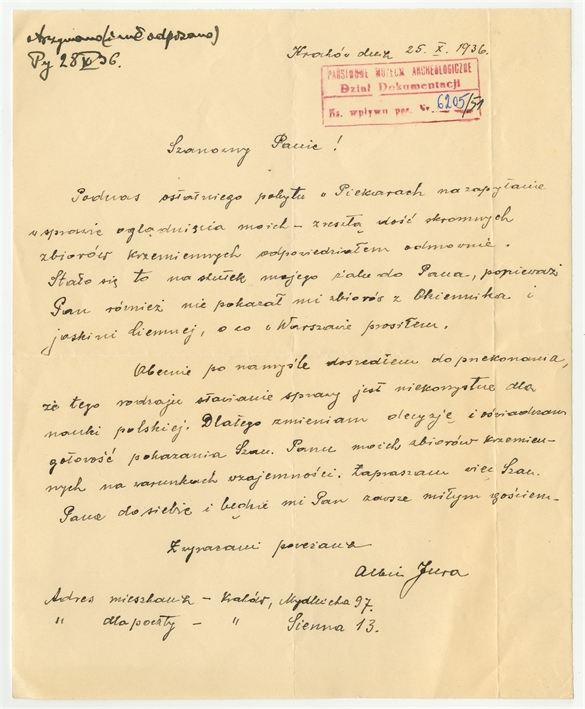 Otrzymano (i mil odpisano)
Py 28 X 36.
Kraków dnia 25. X. 1936.
PAŃSTWOWE MUZEUM ARCHEOLOGICZNE
Dział Dokumentacji
Ks. wpływu poz. Nr. 6205/51
Szanowny Panie!
Podczas ostatniego pobytu w Piekarach na zapytanie
w sprawie oglądnięcia moich – zresztą dość skromnych
zbiorów krzemiennych odpowiedziałem odmownie.
Stało się to na skutek mojego żalu do Pana, ponieważ
Pan również nie pokazał mi zbiorów z Okiennika i
jaskini Ciemnej, o co w Warszawie prosiłem.
Obecnie po namyśle doszedłem do przekonania,
że tego rodzaju stawianie sprawy jest niekorzystne dla
nauki polskiej. Dlatego zmieniam decyzję i oświadczam
gotowość pokazania Szan. Panu moich zbiorów krzemien-
nych na warunkach wzajemności. Zapraszam więc Szan.
Pana do siebie i będzie mi Pan zawsze miłym gościem.
Z wyrazami poważania
Albin Jura
Adres mieszkania – Kraków, 97.
" dla poczty – " Sienna 13.